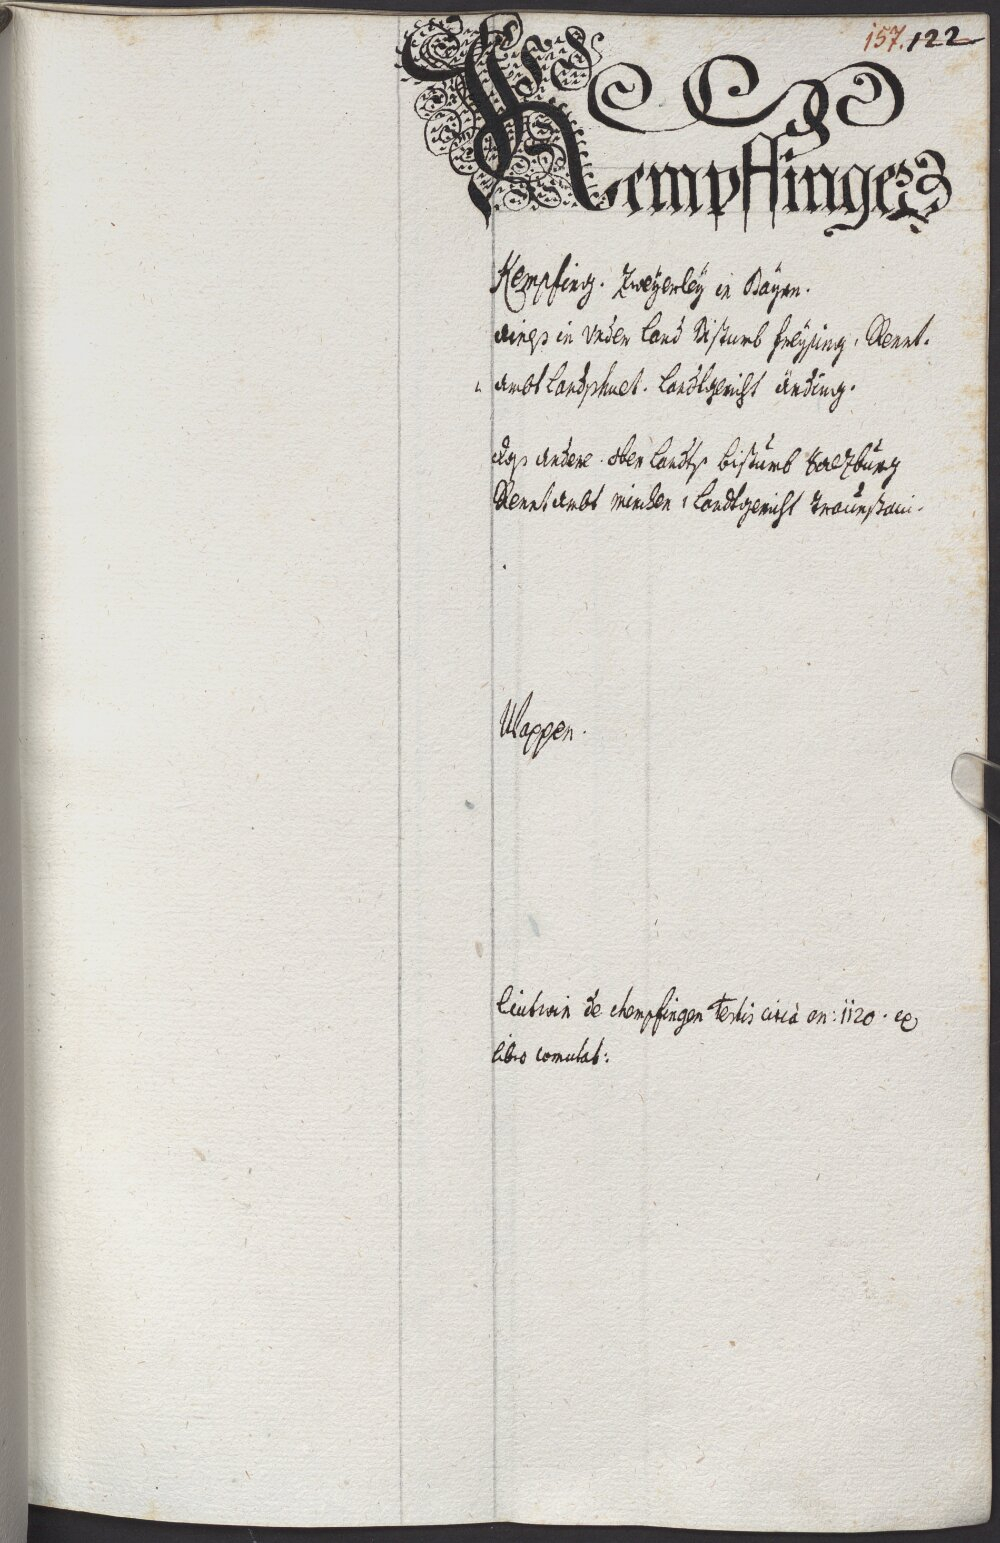 157. 122
Kempffinger
Kempfing. Zweÿerleÿ in Baÿrn.
ains in Under land Bistumb freÿsing, Rennt-
ambt landshuet. landtgericht ärding.
das andere. Oberlandts bistumb Salzburg
Renntambt minchen, landtgericht traunstain.
Wappen.
Liutwin de chempfingen testis circà an: 1120. ex
libro comutat: